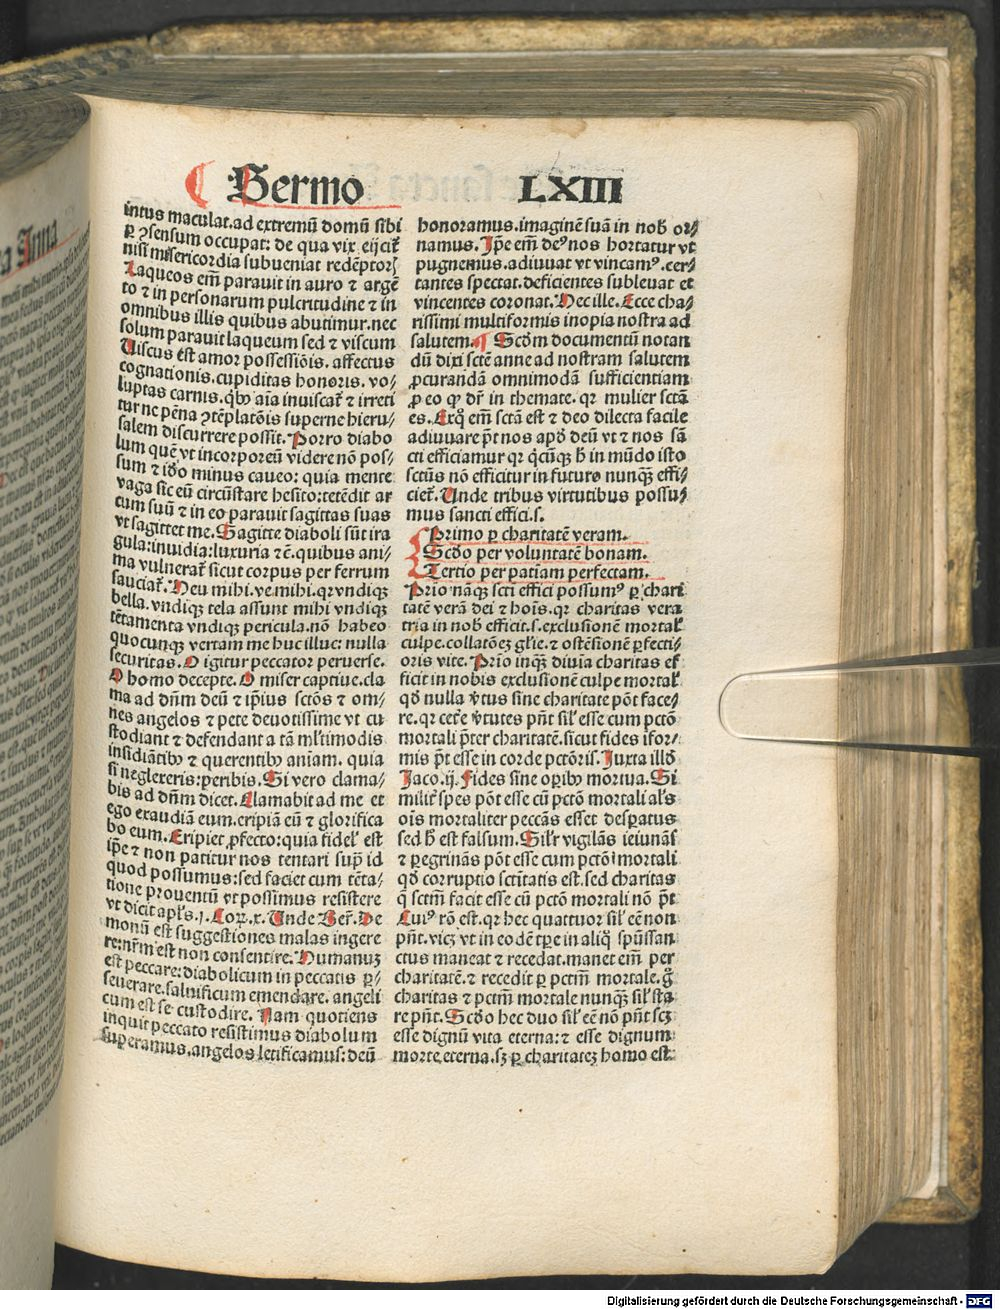 Sermo LXIII
intus maculat.ad extremū domū sibi
ꝑ ꝯsensum occupat: de qua vix eijcit᷑
nisi misericordia subueniat redēptorꝭ
Laqueos em̄ parauit in auro ⁊ argē
to ⁊ in personarum pulcritudine ⁊ in
omnibus illis quibus abutimur.nec
solum parauit laqueum sed ⁊ viscum
Uiscus est amor possessiōis. affectus
cognationis.cupiditas honoris. vo⸗
luptas carnis. qbꝰ aīa inuiscat᷑ ⁊ irreti
tur ne pēna ꝯtēplatōis superne hieru⸗
salem discurrere possit. Porro diabo
lum quē vt incorporeū videre nō pos⸗
sum ⁊ idō minus caueo: quia mente
vaga sic eū circūstare hesito: tetēdit ar
cum suū ⁊ in eo parauit sagittas suas
vt sagittet me. Sagitte diaboli sūt ira
gula: inuidia: luxuria ⁊ē. quibus ani⸗
ma vulnerat᷑ sicut corpus per ferrum
sauciat᷑. Heu mihi. ve mihi. qr vndiqꝫ
bella. vndiqꝫ tela assunt mihi vndiqꝫ
tētamenta vndiqꝫ pericula. nō habeo
quocunqꝫ vertam me huc illuc: nulla
securitas. O igitur peccator peruerse.
O homo decepte. O miser captiue. cla
ma ad dn̄m deū ⁊ ip̄ius sctōs ⁊ om⸗
nes angelos ⁊ pete deuotissime vt cu
stodiant ⁊ defendant a tā ml̄timodis
insidiātibꝰ ⁊ querentibꝰ aniam. quia
si neglexeris: peribis. Si vero clama⸗
bis ad dn̄m dicet. Clamabit ad me et
ego exaudiā eum. eripiā eū ⁊ glorifica
bo eum. Eripiet ꝓfecto: quia fidel᷑ est
ip̄e ⁊ non patitur nos tentari sup̄ id
quod possumus: sed faciet cum tēta⸗
tione prouentū vt possimus resistere
vt dicit apl̄s. j. Cor. x. Unde Ber̄. De
monū est suggestiones malas ingere
re: nr̄m est non consentire. Humanuꝫ
est peccare: diabolicum in peccatis ꝑ⸗
seuerare. saluificum emendare. angeli
cum est se custodire. Nam quotiens
inquit peccato resistimus diabolum
superamus. angelos letificamus: deū
honoramus. imaginē suā in nob᷑ or⸗
namus. Ip̄e em̄ deꝰ nos hortatur vt
pugnemus. adiuuat vt vincamꝰ. cer⸗
tantes spectat. deficientes subleuat et
vincentes coronat. Hec ille. Ecce cha⸗
rissimi multiformis inopia nostra ad
salutem. ¶ Scd̄m documentū notan
dū dixi scte᷑ anne ad nostram salutem
ꝓcurandā omnimodā sufficientiam
ꝓ eo qꝫ dr̄ in themate. qr mulier sctā
es. Exqͦ em̄ sctā est ⁊ deo dilecta facile
adiuuare pōt nos apd̄ deū vt ⁊ nos sā
cti efficiamur qr qͥcūqꝫ h᷑ in mūdo isto
sctūs nō efficitur in futuro nunqꝫ effi⸗
ciet᷑. Unde tribus virtutibus possu⸗
mus sancti effici. s.
Primo ꝑ charitatē veram.
Scd̄o per voluntatē bonam.
Tertio per patīam perfectam.
Prīo nāqꝫ scti effici possumꝰ ꝑ chari
tatē verā dei ⁊ hoīs. qr charitas vera
tria in nob᷑ efficit. s. exclusionē mortal᷑
culpe. collatōeꝫ gl̄ie. ⁊ ostēsionē ꝑfecti⸗
oris vite. Prīo inqꝫ diuīa charitas ef
ficit in nobis exclusionē culpe mortal᷑
qd̄ nulla v̄tus sine charitate pōt face⸗
re. qr cete᷑ v̄tutes pn̄t sil᷑ esse cum pctō
mortali p̄ter charitatē. sicut fides īfor⸗
mis pōt esse in corde pctōris. Iuxta illd̄
Jaco. ij. Fides sine oꝑibꝰ mortua. Si
milit᷑ spes pōt esse cū pctō mortali al᷑s
oīs mortaliter peccās esset despatus
sed h᷑ est falsum. Sil᷑r vigilās ieiunās
⁊ ꝑegrinās pōt esse cum pctō mortali
qd̄ corruptio sctītatis est. sed charitas
q sctm̄ facit esse cū pctō mortali nō pōt
Cuiꝰ rō est. qr hec quattuor sil᷑ eē non
pn̄t. vicꝫ vt in eodē tꝑe in aliqͦ spūssan
ctus maneat ⁊ recedat. manet em̄ per
charitatē. ⁊ recedit ꝑ pctm̄ mortale. gͦ
charitas ⁊ pctm̄ mortale nunqꝫ sil᷑ sta
re pn̄t. Scd̄o hec duo sil᷑ eē nō pn̄t scꝫ
esse dignū vita eterna: ⁊ esse dignum
morte eterna. sꝫ ꝑ charitateꝫ homo est
Digitalisierung gefördert durch die Deutsche Forschungsgemeinschaft - DFG